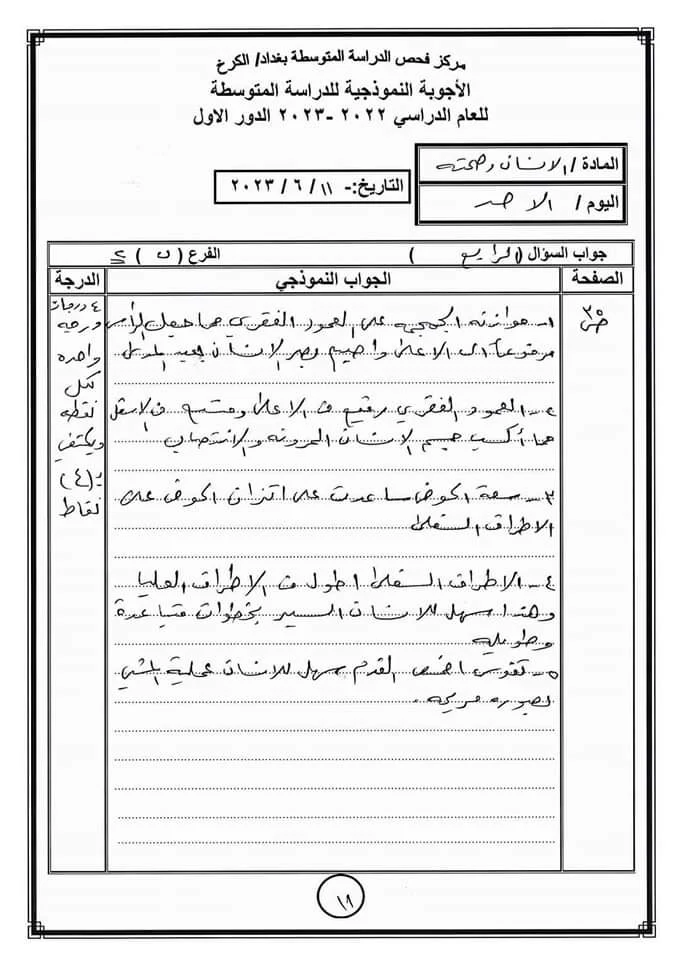 مركز فحص الدراسة المتوسطة بغداد/ الكرخ
الأجوبة النموذجية للدراسة المتوسطة
للعام الدراسي ٢٠٢٢ -٢٠٢٣ الدور الاول
المادة / الانسان وصحته
اليوم / الاحد
التاريخ:- ١١ / ٦ / ٢٠٢٣
جواب السؤال (الرابع) الفرع ( ب )
الصفحة
الجواب النموذجي
الدرجة
ص ٣٥
١- موازنة الجمجمة على العمود الفقري مما جعل الرأس
مرفوعاً الى الاعلى واصبح بصر الانسان بعيد المدى
٢- العمود الفقري رفيع من الاعلى ومتسع من الاسفل
مما أكسب جسم الانسان المرونة والانتصاب
٣- سعة الحوض ساعدت على اتزان الحوض على
الاطراف السفلى
٤- الاطراف السفلى اطول من الاطراف العليا
وهذا سهل للانسان السير بخطوات متباعدة
وطويلة
٥- تقوس اخمص القدم سهل للانسان عملية المشي
بصورة مريحة .
٤ درجات
درجة
واحدة
لكل
نقطة
ويكتفى
بـ (٤)
نقاط
١٩